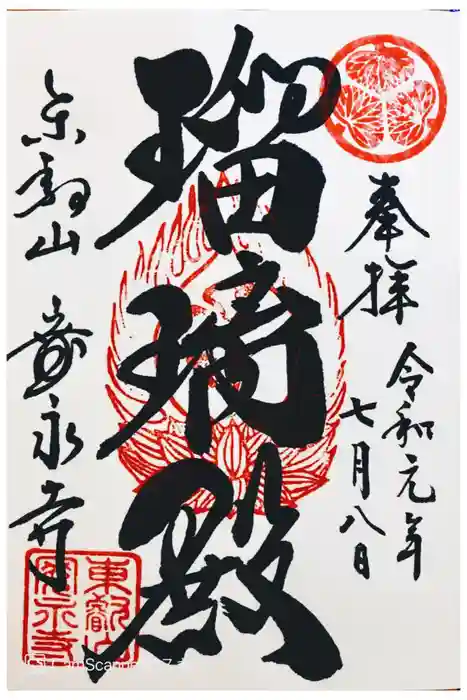 奉拝
令和元年
七月八日
瑠璃殿
東叡山 寛永寺
東叡山
寛永寺